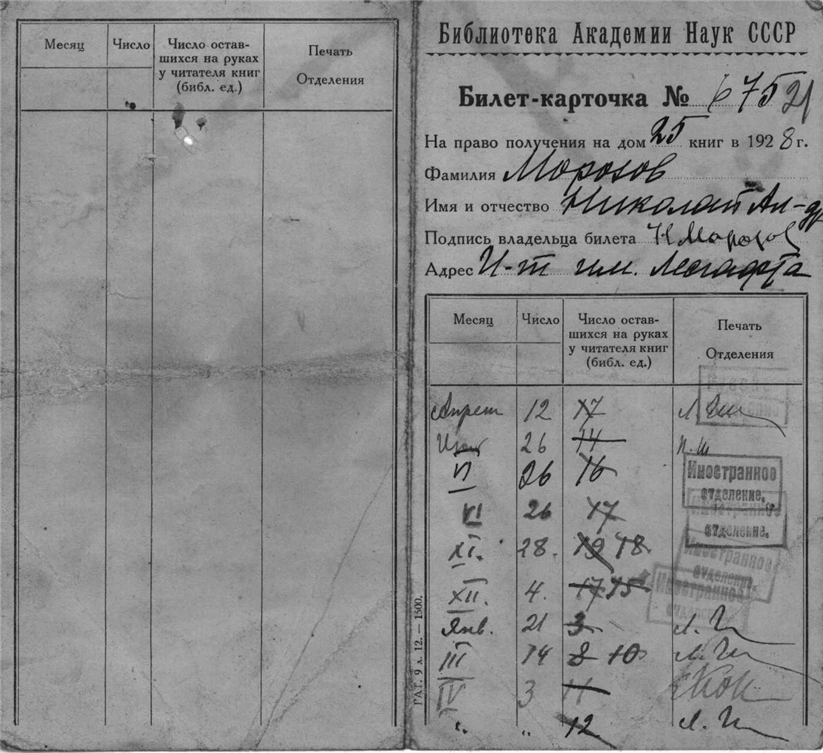 Месяц Число Число остав-
шихся на руках
у читателя книг
(библ. ед.) Печать
Отделения
Библиотека Академии Наук СССР
Билет-карточка № 67521
На право получения на дом 25 книг в 1928 г.
Фамилия Морозов
Имя и отчество Николай Ал-др
Подпись владельца билета Н Морозов
Адрес И-т им. Лесгафта
Месяц Число Число остав-
шихся на руках
у читателя книг
(библ. ед.) Печать
Отделения
Апрель 12 17
26 14 П. Ш
VI 26 16
Иностранное
отделение.
VI 26 17
отделение.
XI. 28. 19 18
Иностранное
отделение
XII. 4. 17 15
Иностранное
Янв. 21 3
III 14 8 10
IV 3 11
" " 12
ГАГ. 9 л. 12. — 1500.